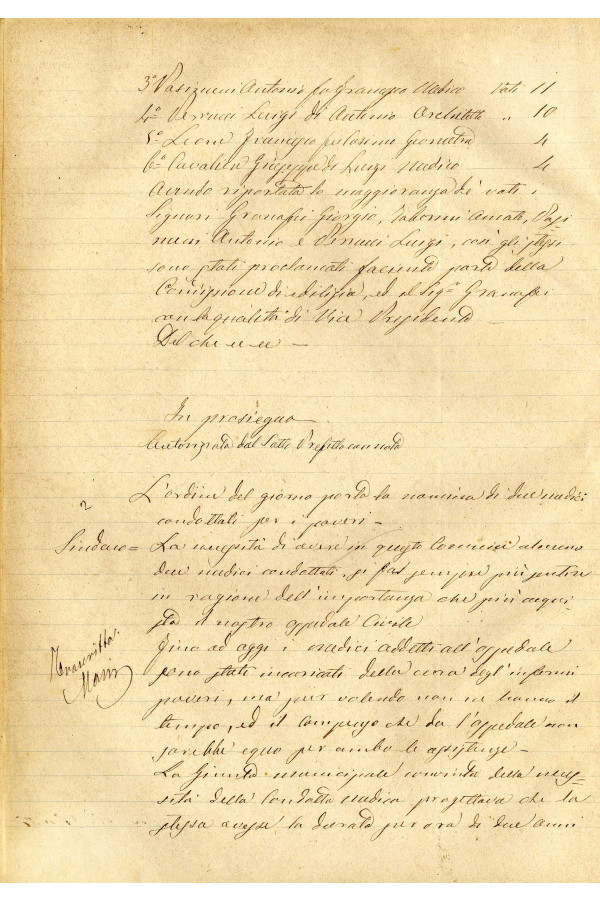 3.º Antonio fu Francesco Medico Voti 11
4.º Perrucci Luigi di Antonio Architetto „ 10
5.º Leone Francesco Geometra 4
6.º Cavaliere Giuseppe di Luigi Medico 4
Avendo riportata la maggioranza de' voti i
Signori Granafei Giorgio, Amato,
Antonio e Perrucci Luigi, così gli stessi
sono stati proclamati facienti parte della
Comissione di edilizia, ed il Sig.r Granafei
con la qualità di Vice Presidente
Del che ec ec —
In prosieguo
Autorizzata dal Sotto Prefetto con nota
2
L'ordine del giorno porta la nomina di due medici
condottati per i poveri —
Sindaco = La necessità di avere in questo Comune almeno
due medici condottati, si fa sempre più sentire
in ragione dell'importanza che più acqui
sta il nostro ospedale Civile
Fino ad oggi i medici addetti all'ospedale
sono stati incaricati della cura degl'infermi
poveri, ma pur volendo non ne hanno il
tempo, ed il compenso che dà l'ospedale non
sarebbe equo per ambo le assistenze —
Trascritta
La Giunta municipale convinta della neces=
sità della Condotta medica progettava che la
stessa avesse la durata per ora di due anni